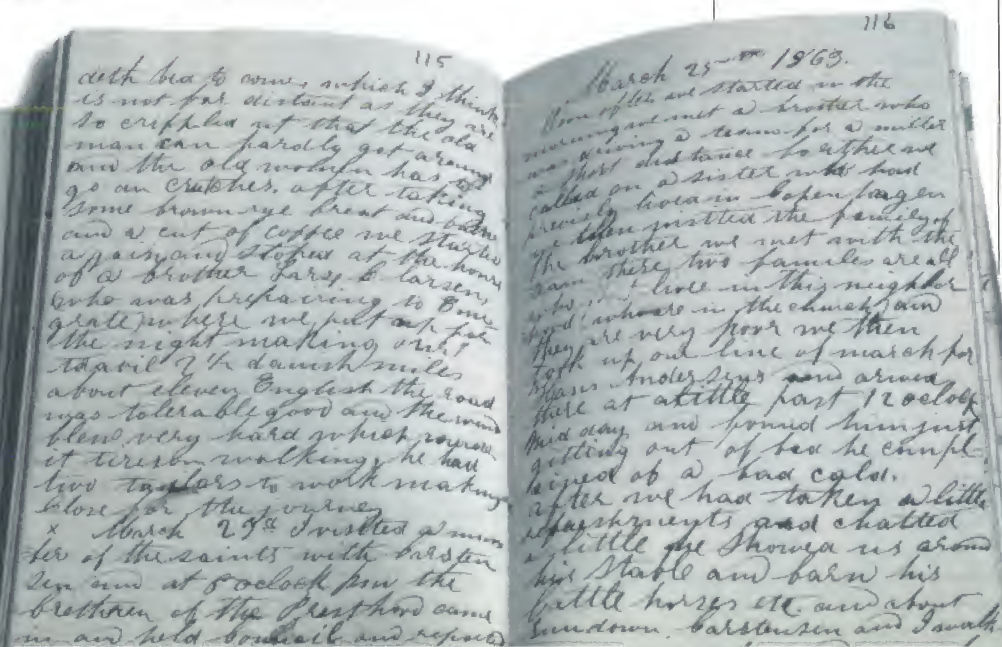 115
deth bed to come, which I think
is not far distant as they are
so crippled up that the old
man can hardly get around
and the old women has to
go on crutches. after taking
some brown rye breat and butter
and a cut of coffee we started
again and stoped at the house
of a brother Larsen,
who was prepairing to Emi
grate, where we put up for
the night making our
travil 2 1/2 danish miles
about eleven English the road
was tolerable good and the wind
blew very hard which
it tirsom walking, he had
two taylors to work making
close for the journey
x March 27th I visited a num
ber of the saints with Carsten
sen and at 8 oclock pm the
brethren of the Presthood came
in and held council and reported
116
March 25 1863.
Soon after we started in the
morning we met a brother who
was driving a teame for a miller
a short distance farther we
called on a sister who had
previsly lived in Copenhagen
we then visitted the family of
the brother we met with the
team, these two families are all
who live in this neighbor
hood, who are in the church, and
they are very poor we then
took up our line of march for
Hans Andersens and arived
there at a little past 12 oclock
mid day and found him just
gitting out of bed he compl
ained of a bad cald.
after we had taken a little
refreshments and chatted
a little he showed us around
his stable and barn his
cattle horses etc. and about
sundown. Carstensen and I walk